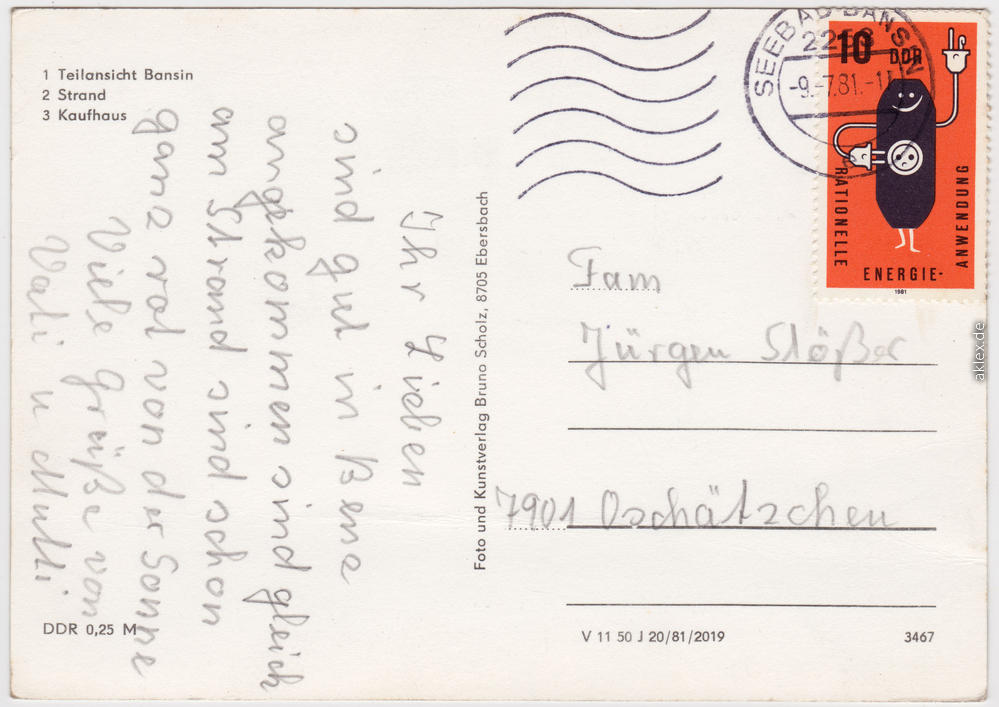 1 Teilansicht Bansin
2 Strand
3 Kaufhaus
Ihr Lieben
sind gut in Bens
angekommen sind gleich
am Strand sind schon
ganz rot von der Sonne
Viele Grüße von
Vati u Mutti
DDR 0,25 M
Foto und Kunstverlag Bruno Scholz, 8705 Ebersbach
SEEBAD BANSIN
-9.-7.81.-11
10 DDR
RATIONELLE
ENERGIE-
ANWENDUNG
1981
Fam
Jürgen Stößer
7901 Oschätzchen
V 11 50 J 20/81/2019
3467
aklex.de